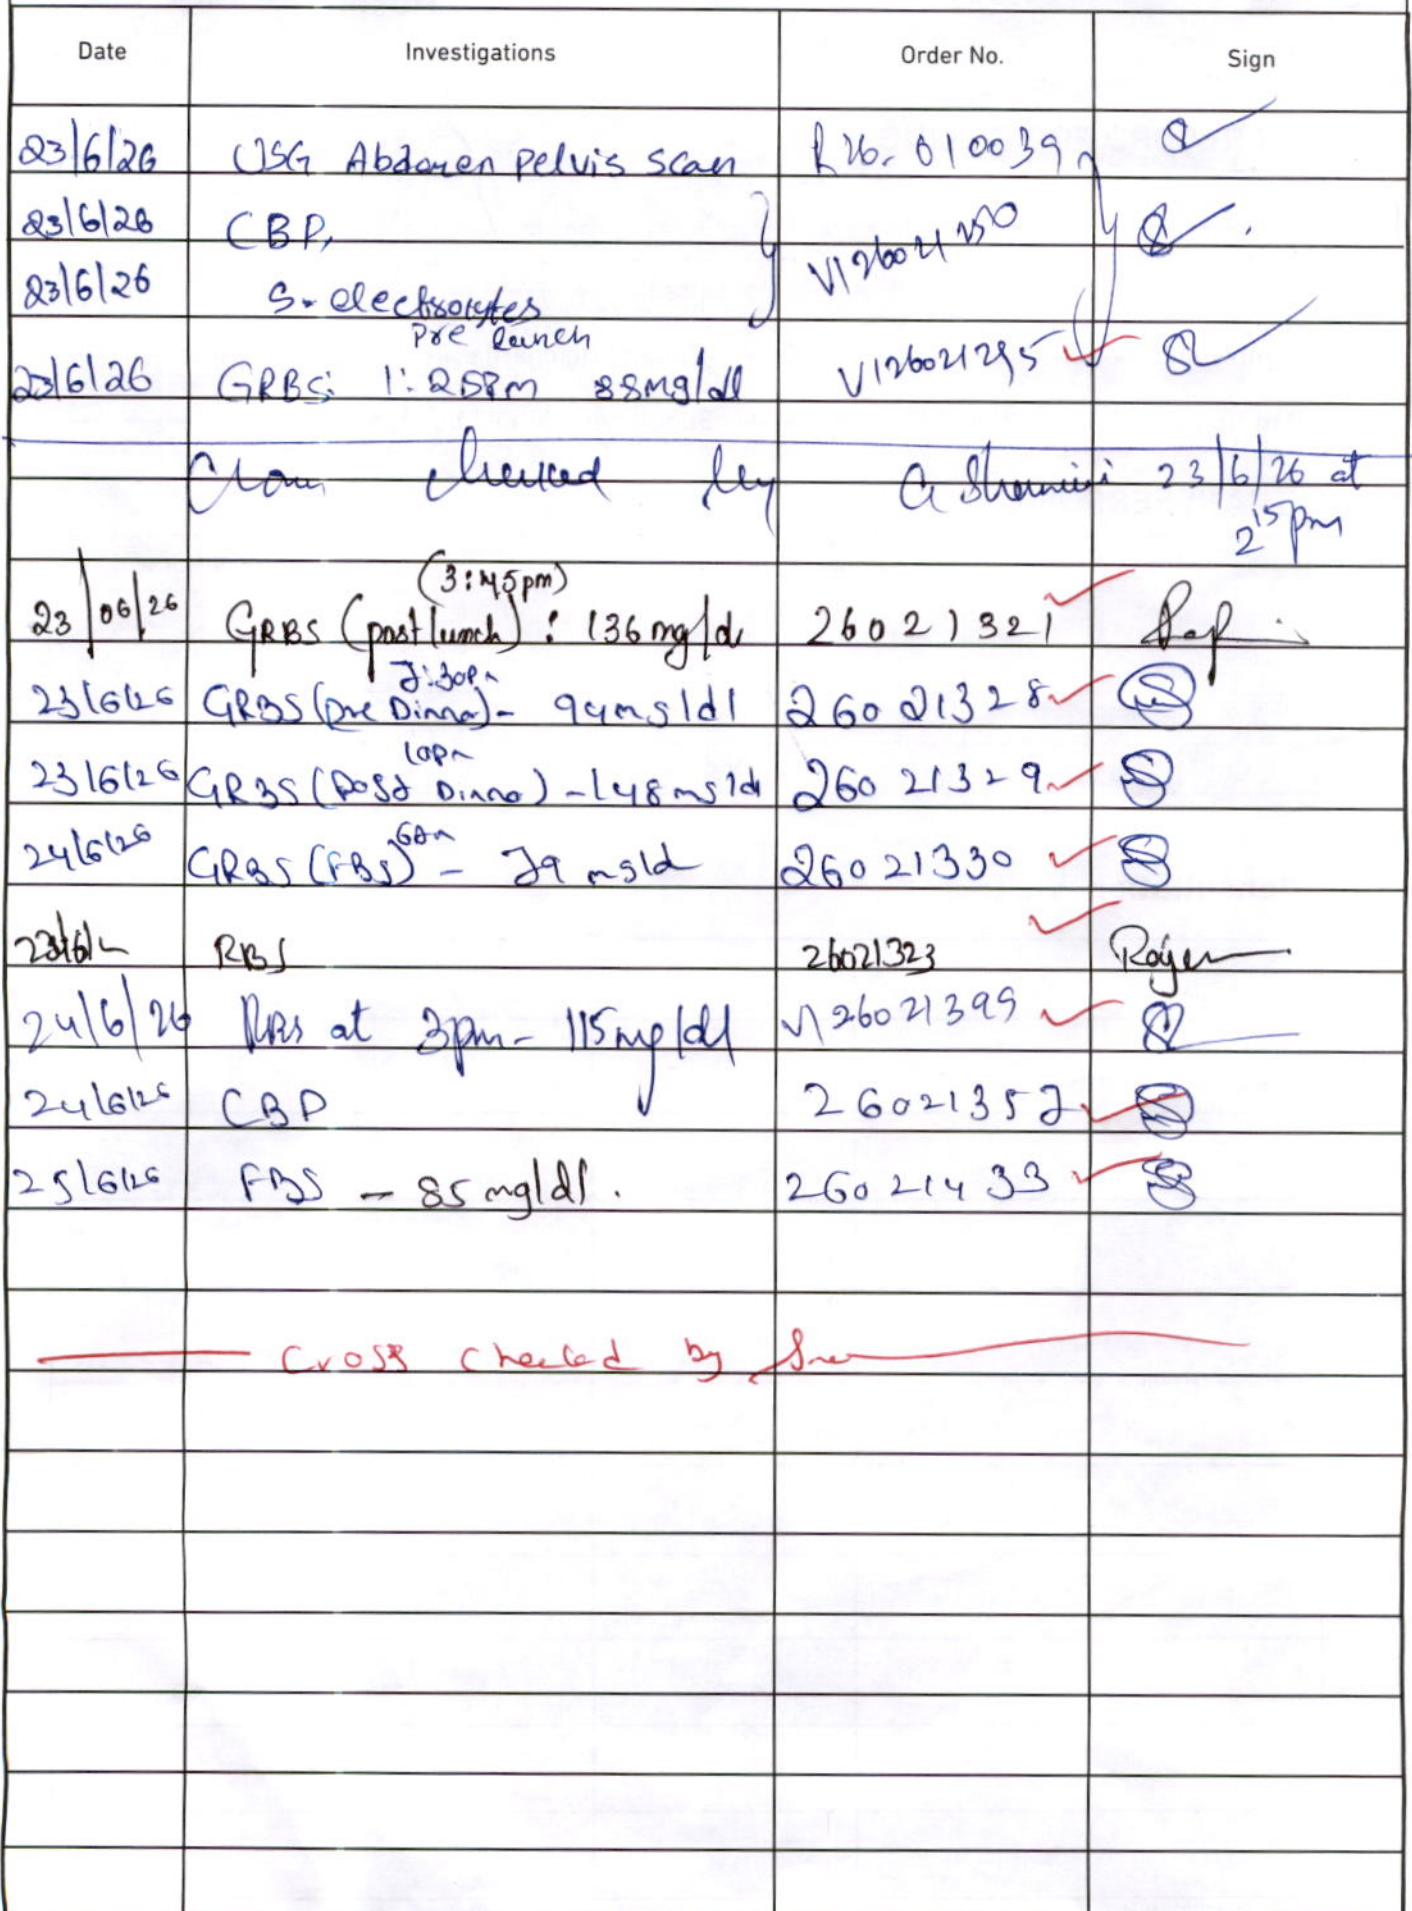 Date Investigations Order No. Sign
23/6/26 USG Abdomen pelvis scan R26-010039
23/6/26 CBP,
23/6/26 S-electrolytes VI26021250
Pre lunch
23/6/26 GRBS: 1:25pm 88mg/dl VI26021295
checked by G Shamini 23/6/26 at
2 15pm
(3:45pm)
23/06/26 GRBS (post lunch) : 136 mg/dl 26021321
7:30pm
23/6/26 GRBS (pre Dinner) - 94mg/dl 26021328
10pm
23/6/26 GRBS (Post Dinner) - 148 mg/dl 26021329
6am
24/6/26 GRBS (FBS) - 79 mg/dl 26021330
23/6/ RBS 26021323
24/6/26 RBS at 3pm - 115mg/dl VI26021399
24/6/26 CBP 26021357
25/6/26 FBS - 85 mg/dl. 26021433
Cross checked by